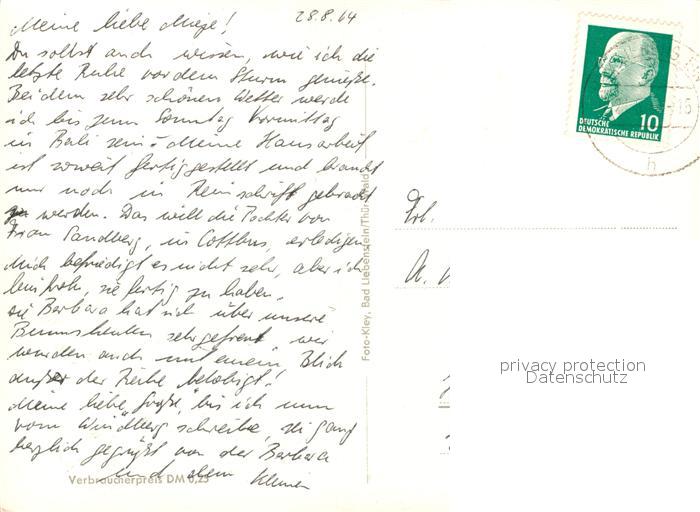 28.8.64
Meine liebe Mieze!
Du sollst auch wissen, wie ich die
letzte Ruhe vor dem Sturm genieße.
Bei dem sehr schönen Wetter werde
ich bis zum Sonntag Vormittag
in Bali sein. Meine Hausarbeit
ist soweit fertiggestellt und braucht
nur noch in Reinschrift gebracht
zu werden. Das will die Tochter von
Frau Sandberg, in Cottbus, erledigen
Mich befriedigt es nicht sehr, aber ich
bin froh, sie fertig zu haben.
die Barbara hat sich über unsere
sehr gefreut, wir
wurden auch mit einem Blick
außer der Reihe belohnt!
Meine liebe "Große", bis ich nun
vom Windberg schreibe, sei ganz
herzlich gegrüßt von der Barbara
und dem Kleinen
Verbraucherpreis DM 0,25
Foto-Kley, Bad Liebenstein/Thür.
DEUTSCHE
DEMOKRATISCHE REPUBLIK
10
h
Frl.
A.
privacy protection
Datenschutz